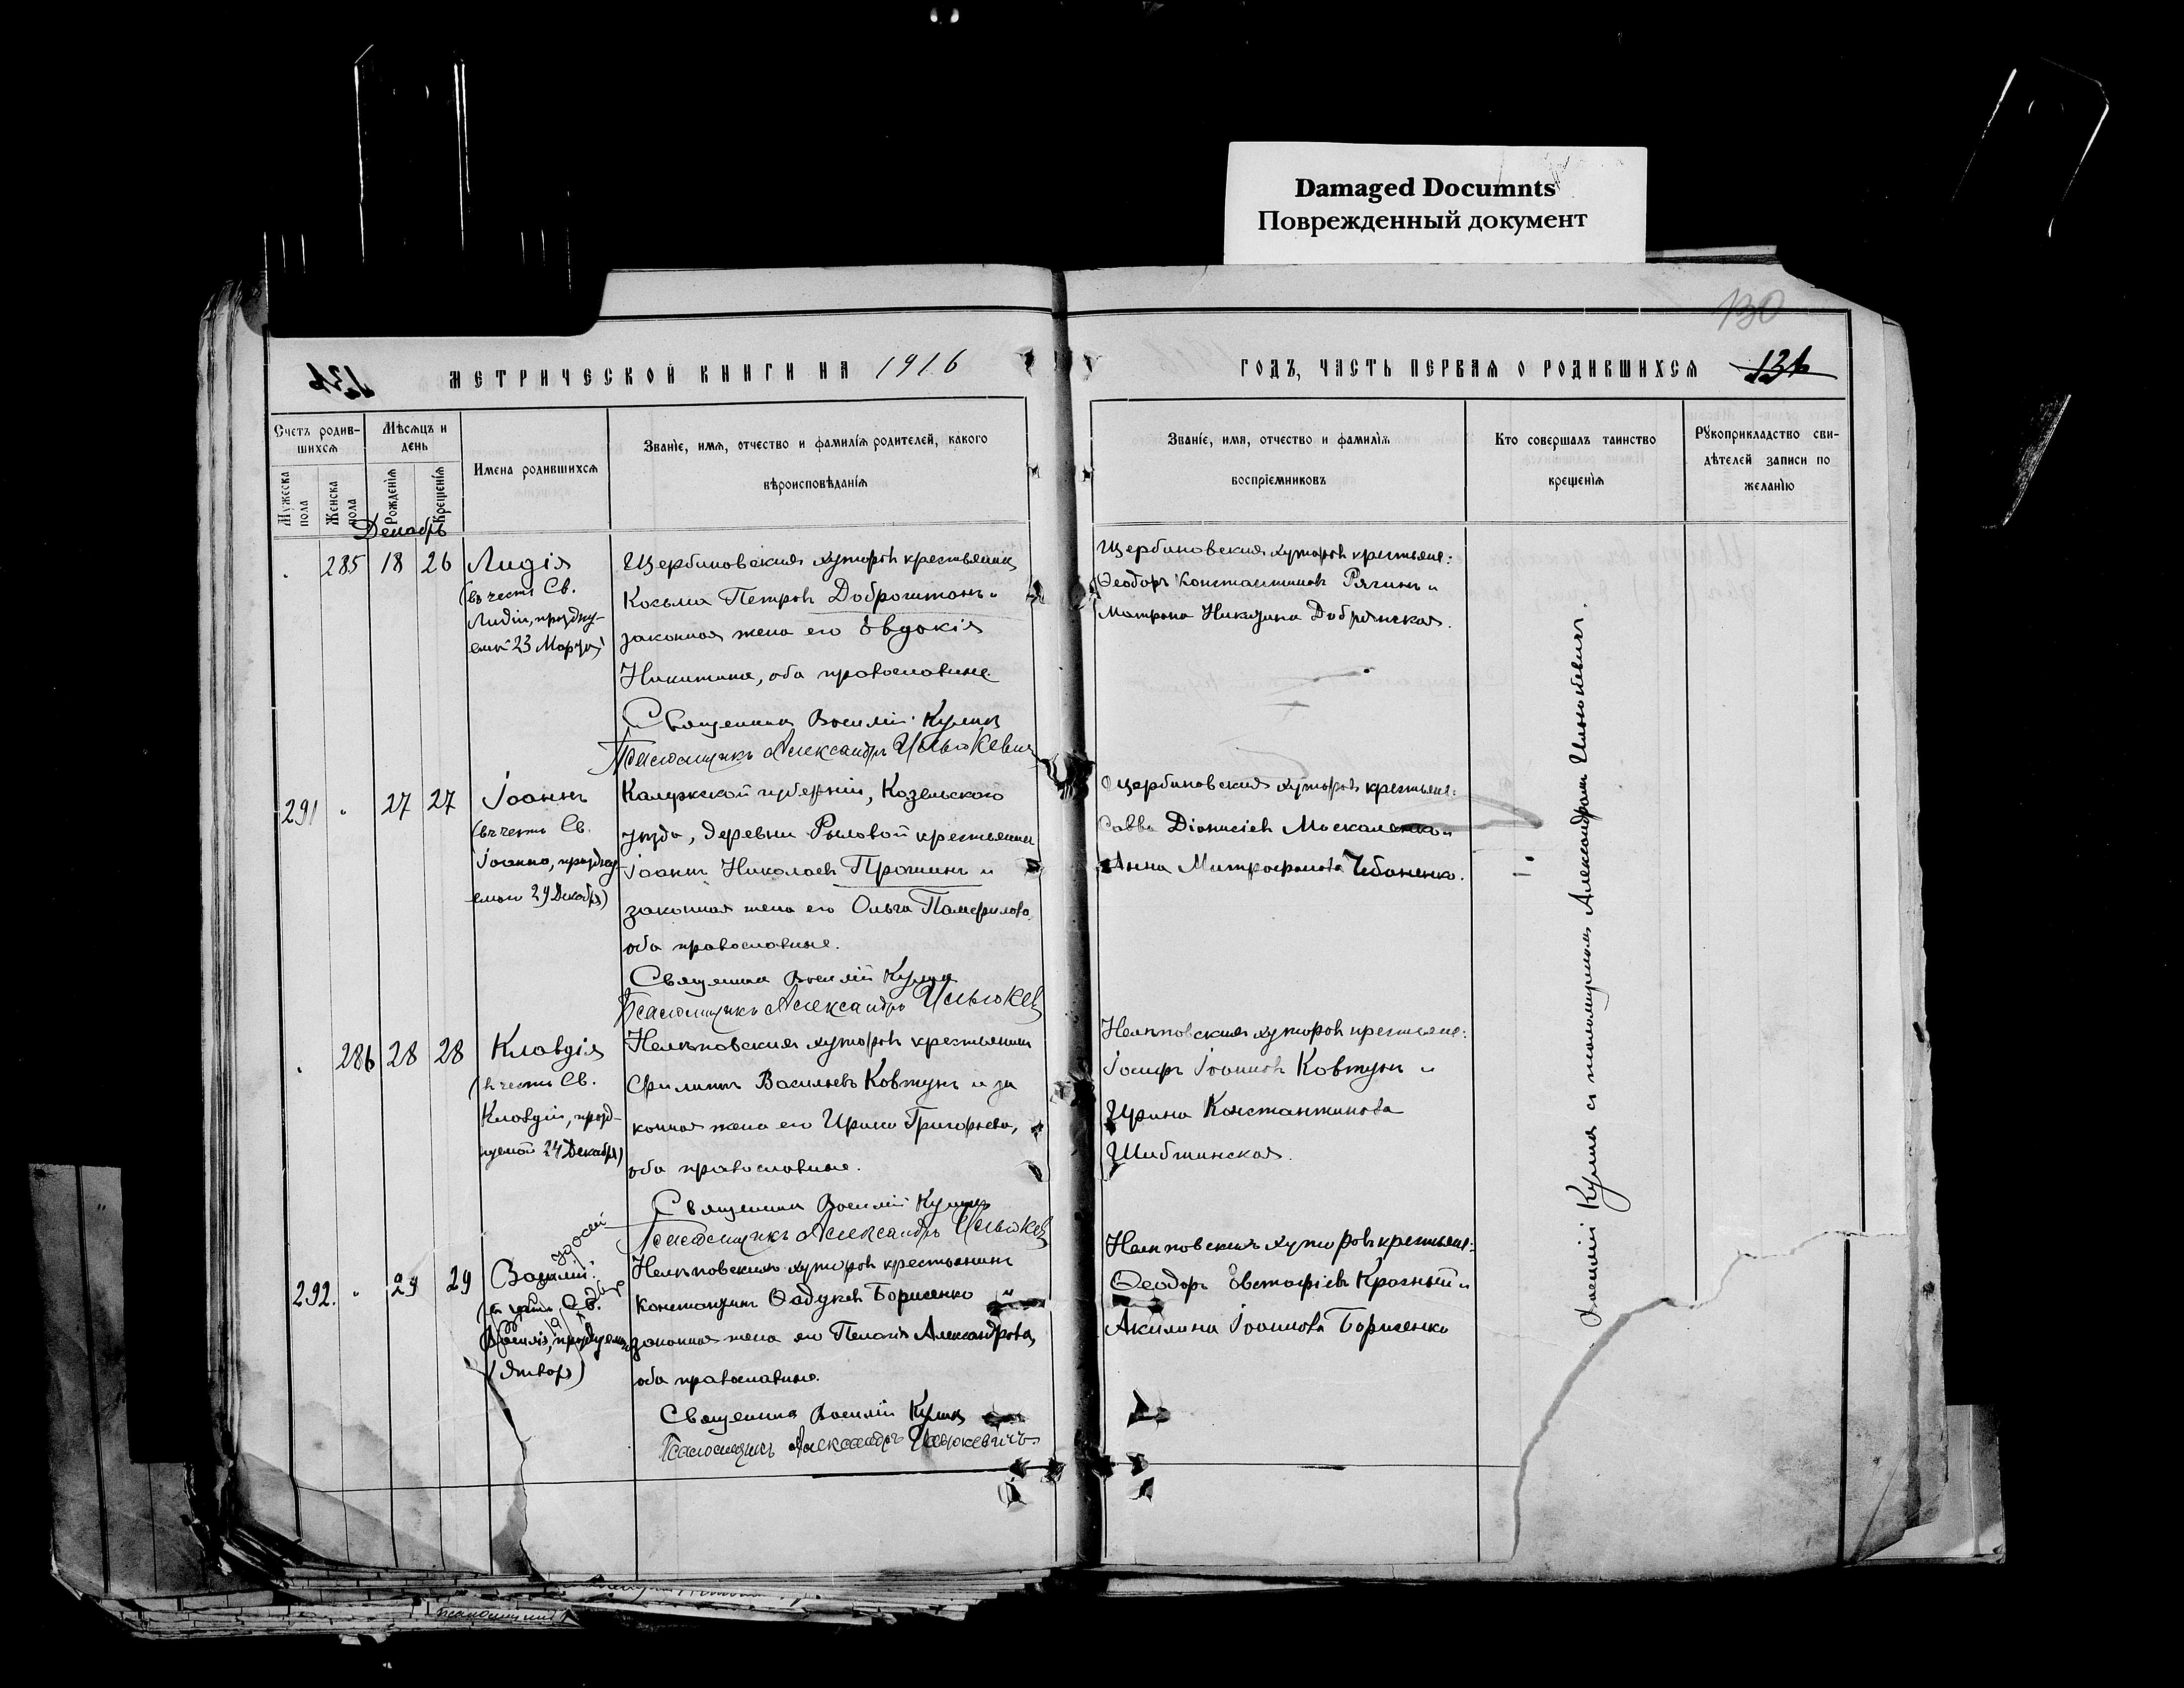 Damaged Documnts
Поврежденный документ
130
131
МЕТРИЧЕСКОЙ КНИГИ НА 1916
Счетъ родив-
шихся
Мѣсяцъ и
день
Имена родившихся
Званіе, имя, отчество и фамилія родителей, какого
вѣроисповѣданія
Мужеска
пола
Женска
пола
Рожденія
Крещенія
Декабрь
285 18 26 Лидія
(въ честь Св.
Лидіи, праздну-
емой 23 Марта)
Щербиновскихъ хуторовъ крестьянинъ
Козьма Петровъ
законная жена его Евдокія
Никитина, оба православные.
Священникъ Василій Кулик
Псаломщикъ Александръ Ильюкевич
291 27 27 Іоаннъ
(въ честь Св.
Іоанна, праздну-
емаго 29 Декабря)
Калужской губерніи, Козельского
уѣзда, деревни крестьянинъ
Іоаннъ Николаевъ Прошинъ и
законная жена его Ольга Памфилова,
оба православные.
Священникъ Василій Кулик
Псаломщикъ Александръ Ильюкев
286 28 28 Клавдія
(въ честь Св.
Клавдіи, празд-
нуемой 24 Декабря)
Нелѣповскихъ хуторовъ крестьянинъ
Филиппъ Васильевъ Ковтунъ и за
конная жена его Ирина Григорьева,
оба православные.
Священникъ Василій Кулик
Псаломщикъ Александръ Ильюкев
292. 29 29 Василій
(въ честь Св.
Василія,
Январ)
Нелѣповскихъ хуторовъ крестьянинъ
Константинъ Борисенко и
законная жена его Пелагія Александрова,
оба православные.
Священникъ Василій Кулик
Псаломщикъ Александръ Ильюкевичъ
ГОДЪ, ЧАСТЬ ПЕРВАЯ О РОДИВШИХСЯ 131
Званіе, имя, отчество и фамилія
воспріемниковъ
Кто совершалъ таинство
крещенія
Рукоприкладство сви-
дѣтелей записи по
желанію
Щербиновскихъ хуторовъ крестьяне:
Ѳеодоръ Константиновъ Рягинъ и
Матрона Никитина Добрянская.
Щербиновскихъ хуторовъ крестьяне:
Савва Діонисіевъ Москаленко и
Анна Митрофанова Чебаненко.
Нелѣповскихъ хуторовъ крестьяне:
Іосифъ Іоанновъ Ковтунъ и
Ирина Константинова
Нелѣповскихъ хуторовъ крестьяне:
Ѳеодоръ Евстафіевъ Красный и
Акилина Іоаннова Борисенко
Василій Кулик съ псаломщикомъ Александромъ Ильюкевичъ.